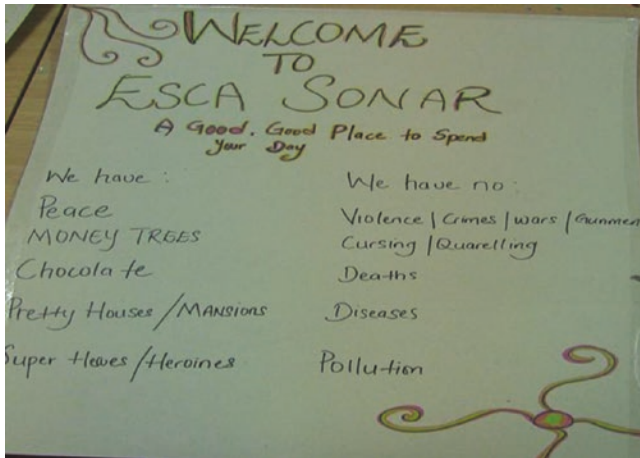 WELCOME
TO
ESCA SONAR
A Good, Good Place to Spend
Your Day
We have :
Peace
MONEY TREES
Chocolate
Pretty Houses / MANSIONS
Super Heroes / Heroines
We have no :
Violence | Crimes | wars | Gunmen
Cursing | Quarelling
Deaths
Diseases
Pollution